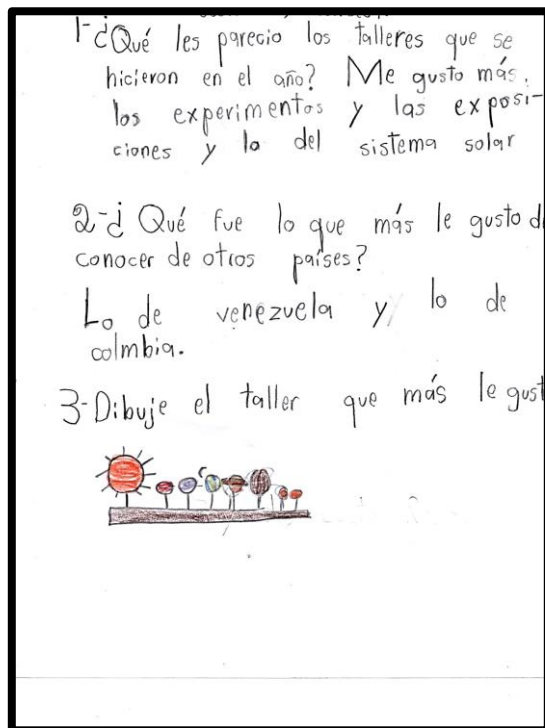 1-¿Qué les parecio los talleres que se
hicieron en el año? Me gusto más.
los experimentos y las exposi-
ciones y lo del sistema solar
2-¿Qué fue lo que más le gusto d
conocer de otros países?
Lo de venezuela y lo de
colmbia.
3-Dibuje el taller que más le gust